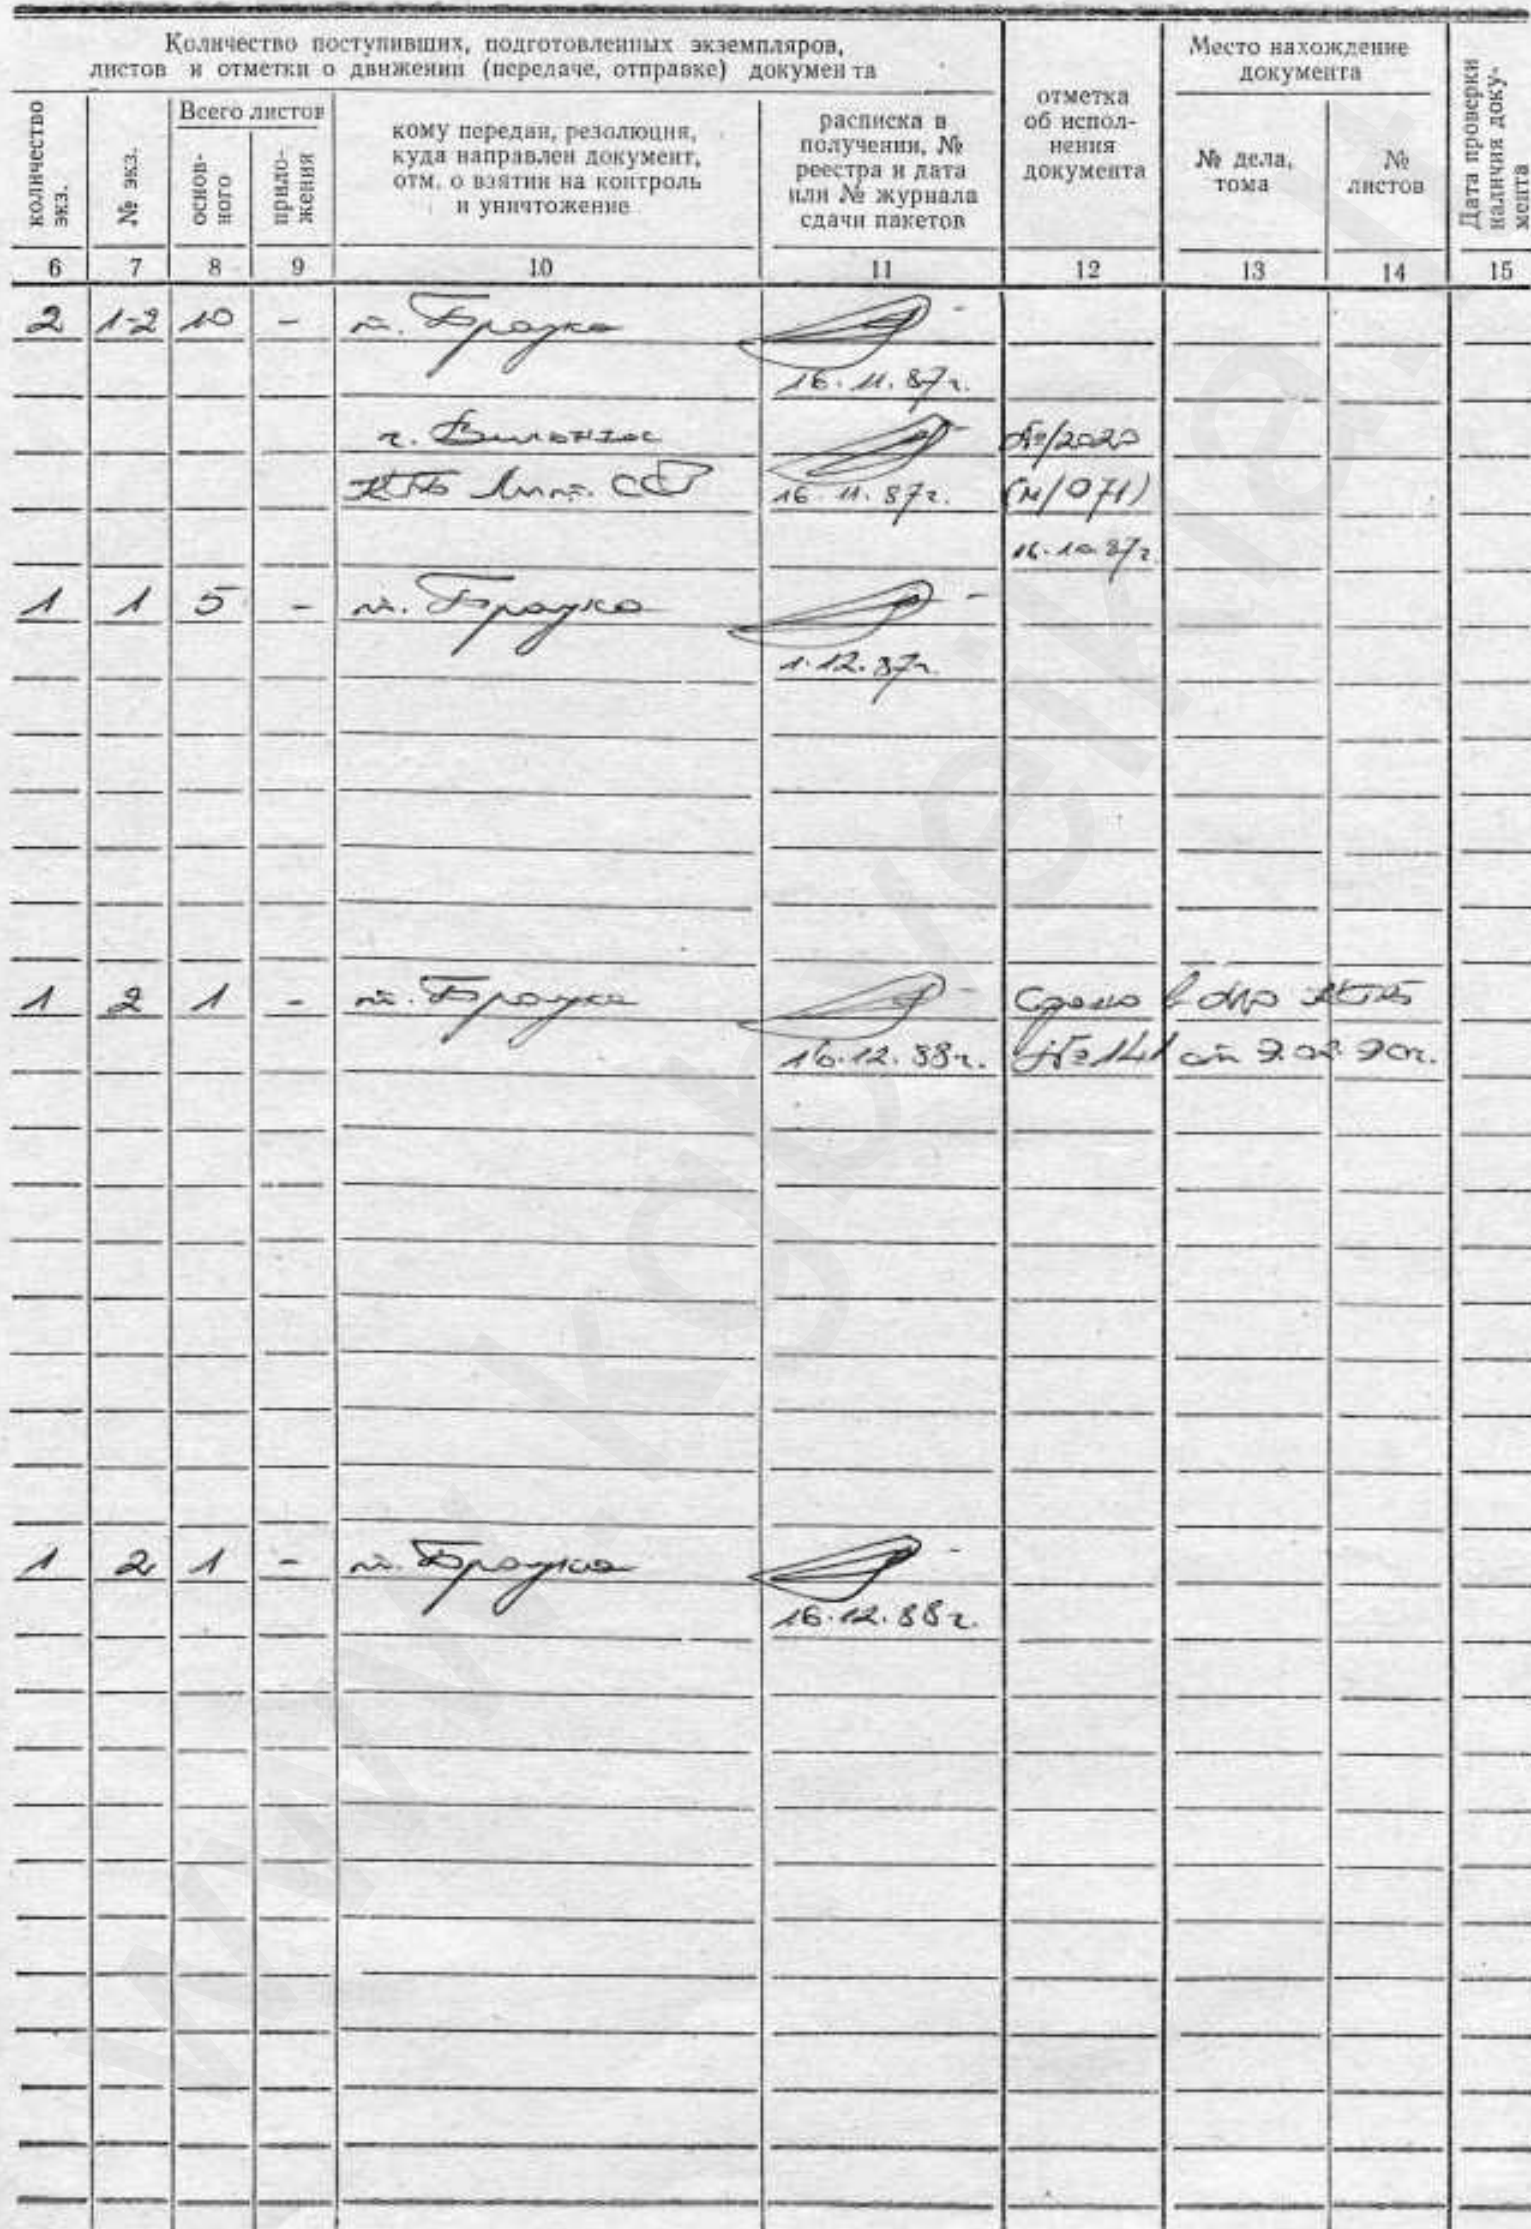 Количество поступивших, подготовленных экземпляров,
листов и отметки о движении (передаче, отправке) документа
Место нахождение
документа
Дата проверки
наличия доку-
мента
количество
экз.
№ экз.
Всего листов
основ-
ного
прило-
жения
кому передан, резолюция,
куда направлен документ,
отм. о взятии на контроль
и уничтожение
расписка в
получении, №
реестра и дата
или № журнала
сдачи пакетов
отметка
об испол-
нения
документа
№ дела,
тома
№
листов
6 7 8 9 10 11 12 13 14 15
2 1-2 10 - т. Брауко
16.11.87г.
г. Вильнюс №/2020
КГБ Лит. ССР 16.11.87г. (м/071)
16.10.87г.
1 1 5 - т. Брауко
1.12.87г.
1 2 1 - т. Брауко в КГБ
16.12.88г. №141 от 9.02.90г.
1 2 1 - т. Брауко
16.12.88г.